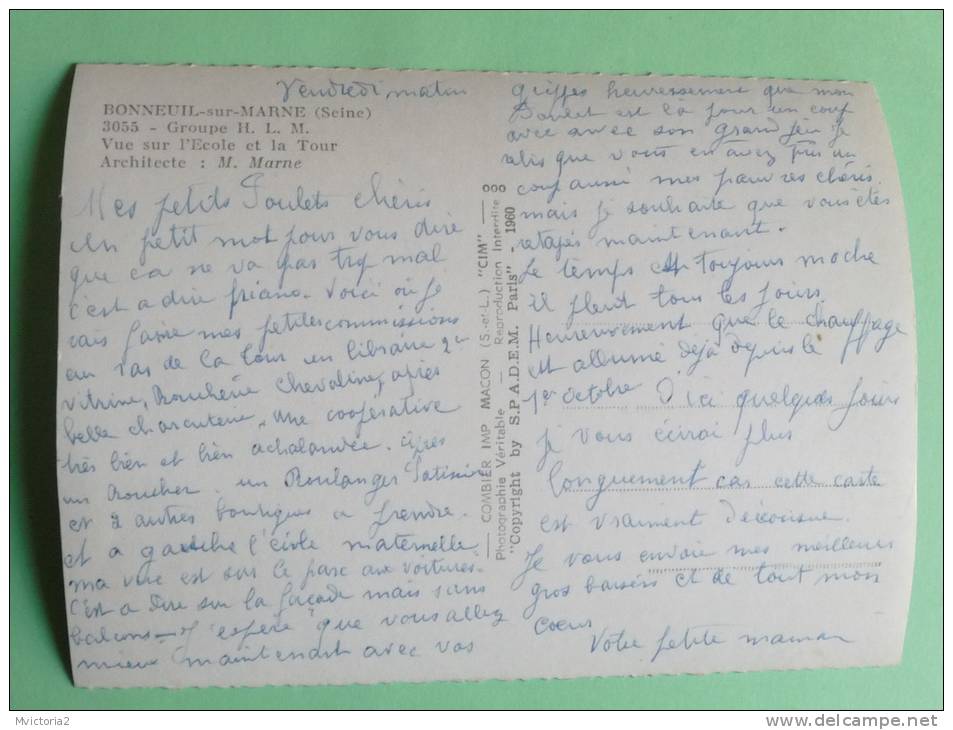 Vendredi matin
BONNEUIL-sur-MARNE (Seine)
3055 - Groupe H. L. M.
Vue sur l'Ecole et la Tour
Architecte : M. Marne
Mes petits Poulets chéris
un petit mot pour vous dire
que ca ne va pas trop mal
c'est a dire piano. Voici où je
vais faire mes petites commissions
au bas de la tour un libraire 2
vitrine, Boucherie chevaline, après
belle charcuterie, une coopérative
très bien et bien achalandée. après
un boucher. un Boulanger Patissier
et 2 autres boutiques a prendre.
et a gauche l'école maternelle.
ma vue est sur le parc aux voitures.
c'est a dire sur la façade mais sans
balcons. J'espère que vous allez
mieux maintenant avec vos
COMBIER IMP MACON (S.-et-L.) "CIM"
Photographie Véritable — Reproduction Interdite
"Copyright by S.P.A.D.E.M. Paris" - 1960
griffes heureusement que mon
Poulet est là pour un coup
avec son grand feu je
vois que vous en avez pris un
coup aussi mes pauvres chéris.
mais je souhaite que vous êtes
retapés maintenant.
Le temps est toujours moche
il pleut tous les jours.
Heureusement que le chauffage
est allumé déjà depuis le
1er octobre D'ici quelques jours
je vous écrirai plus
longuement car cette carte
est vraiment décousue.
Je vous envoie mes meilleurs
gros baisers et de tout mon
coeur
Votre petite maman
Mvictoria2
delcampe.net